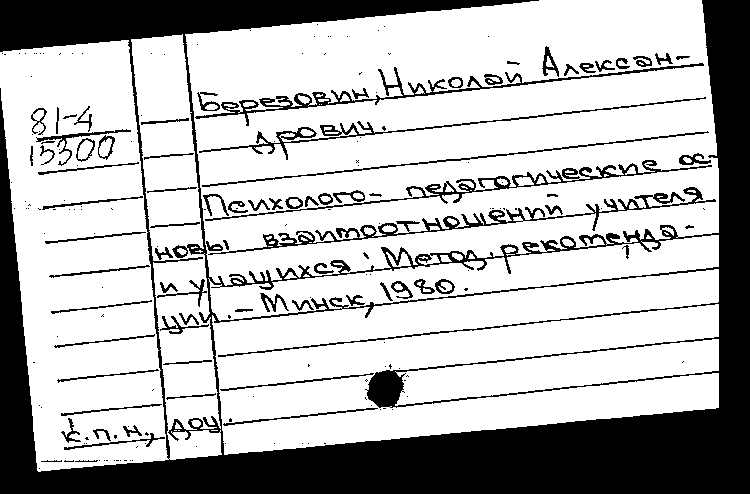 81-4
15300
Березовин, Николай Алексан-
дрович.
Психолого- педагогические ос-
новы взаимоотношений учителя
и учащихся : Метод. рекоменда-
ции. – Минск, 1980.
к.п.н., доц.